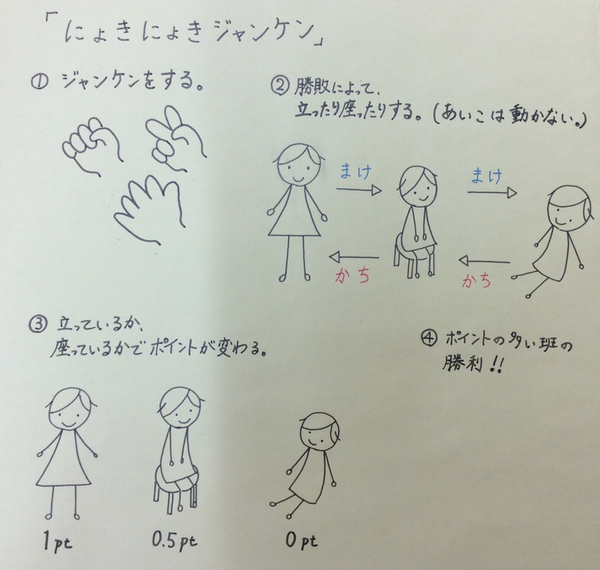 「にょきにょきジャンケン」
① ジャンケンをする。
② 勝敗によって、
立ったり座ったりする。(あいこは動かない。)
まけ
まけ
かち
かち
③ 立っているか、
座っているかでポイントが変わる。
④ ポイントの多い班の
勝利!!
1pt
0.5pt
0pt